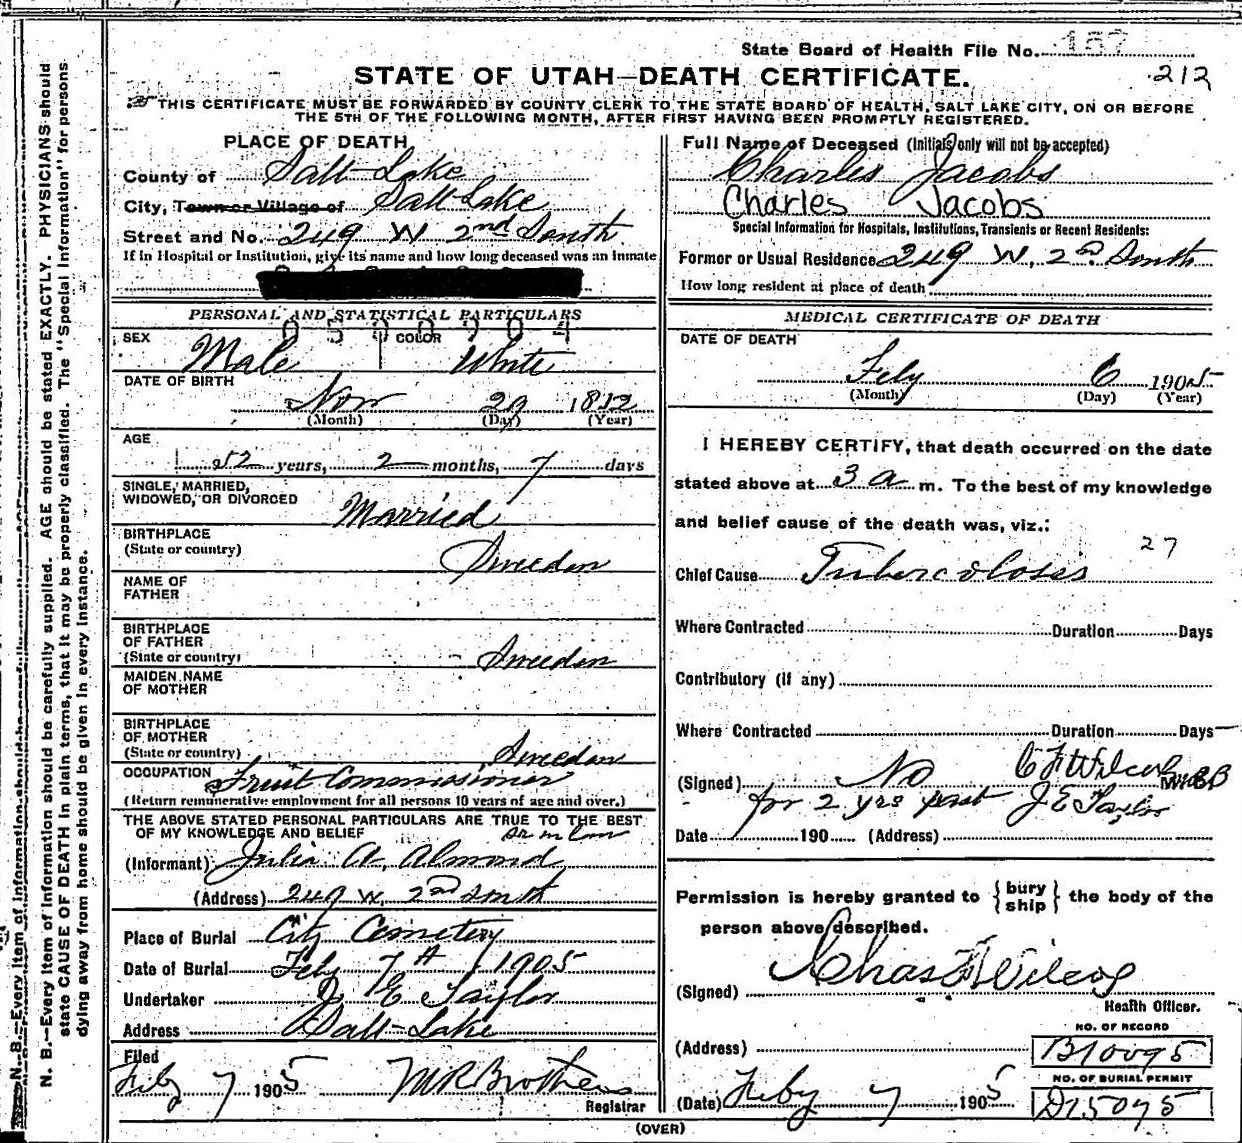 State Board of Health File No. 157
212
STATE OF UTAH—DEATH CERTIFICATE.
THIS CERTIFICATE MUST BE FORWARDED BY COUNTY CLERK TO THE STATE BOARD OF HEALTH, SALT LAKE CITY, ON OR BEFORE
THE 5TH OF THE FOLLOWING MONTH, AFTER FIRST HAVING BEEN PROMPTLY REGISTERED.
N. B.—Every item of information should be carefully supplied. AGE should be stated EXACTLY. PHYSICIANS should
state CAUSE OF DEATH in plain terms, that it may be properly classified. The "Special Information" for persons
dying away from home should be given in every instance.
PLACE OF DEATH
County of Salt Lake
City, Town or Village of Salt Lake
Street and No. 249 W 2nd South
If in Hospital or Institution, give its name and how long deceased was an inmate
PERSONAL AND STATISTICAL PARTICULARS
SEX Male COLOR White
DATE OF BIRTH
Nov 29 1852
(Month) (Day) (Year)
AGE
52 years, 2 months, 7 days
SINGLE, MARRIED,
WIDOWED, OR DIVORCED Married
BIRTHPLACE
(State or country) Sweeden
NAME OF
FATHER
BIRTHPLACE
OF FATHER
(State or country) Sweeden
MAIDEN NAME
OF MOTHER
BIRTHPLACE
OF MOTHER
(State or country) Sweeden
OCCUPATION Fruit Commissioner
(Return remunerative employment for all persons 10 years of age and over.)
THE ABOVE STATED PERSONAL PARTICULARS ARE TRUE TO THE BEST
OF MY KNOWLEDGE AND BELIEF
(Informant) Julia A. Almond
(Address) 249 W. 2nd South
Place of Burial City Cemetery
Date of Burial Feby 7th 1905
Undertaker J E Taylor
Address Salt Lake
Filed
Feby 7 1905 M R Brothers
Registrar
Full Name of Deceased (Initials only will not be accepted)
Charles Jacobs
Charles Jacobs
Special Information for Hospitals, Institutions, Transients or Recent Residents:
Former or Usual Residence 249 W. 2nd South
How long resident at place of death
MEDICAL CERTIFICATE OF DEATH
DATE OF DEATH
Feby 6 1905
(Month) (Day) (Year)
I HEREBY CERTIFY, that death occurred on the date
stated above at 3 a m. To the best of my knowledge
and belief cause of the death was, viz.:
27
Chief Cause Tubercolosis
Where Contracted Duration Days
Contributory (if any)
Where Contracted Duration Days
(Signed) No C F Wilcox
for 2 yrs past J E Taylor
Date 190 (Address)
Permission is hereby granted to {bury ship} the body of the
person above described.
(Signed) Chas F Wilcox
Health Officer.
(Address)
NO. OF RECORD
B10095
NO. OF BURIAL PERMIT
D15095
(Date) Feby 7 1905
(OVER)